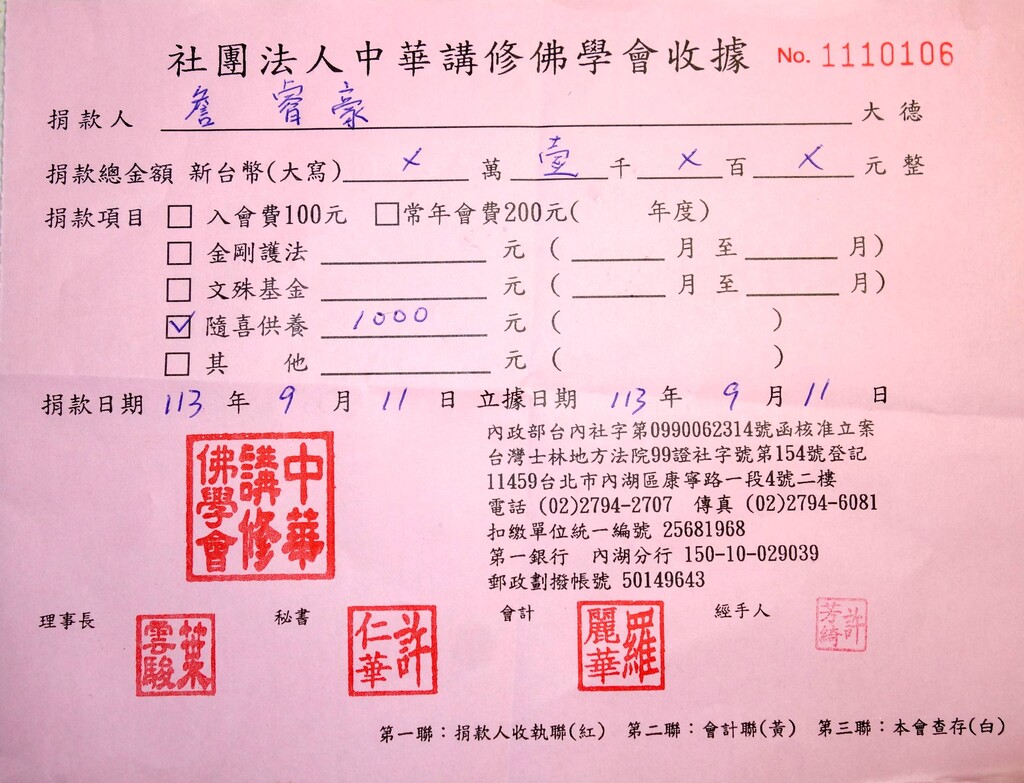 社團法人中華講修佛學會收據 No. 1110106
捐款人 詹睿豪 大德
捐款總金額 新台幣(大寫) X 萬 壹 千 X 百 X 元整
捐款項目 □ 入會費100元 □常年會費200元( 年度)
□ 金剛護法 ______ 元 ( ______ 月 至 ______ 月)
□ 文殊基金 ______ 元 ( ______ 月 至 ______ 月)
☑ 隨喜供養 1000 元 ( )
□ 其 他 ______ 元 ( )
捐款日期 113 年 9 月 11 日 立據日期 113 年 9 月 11 日
中華講修佛學會
內政部台內社字第0990062314號函核准立案
台灣士林地方法院99證社字號第154號登記
11459台北市內湖區康寧路一段4號二樓
電話 (02)2794-2707 傳真 (02)2794-6081
扣繳單位統一編號 25681968
第一銀行 內湖分行 150-10-029039
郵政劃撥帳號 50149643
理事長 葉雲駿 秘書 許仁華 會計 羅麗華 經手人 許芳綺
第一聯：捐款人收執聯(紅) 第二聯：會計聯(黃) 第三聯：本會查存(白)